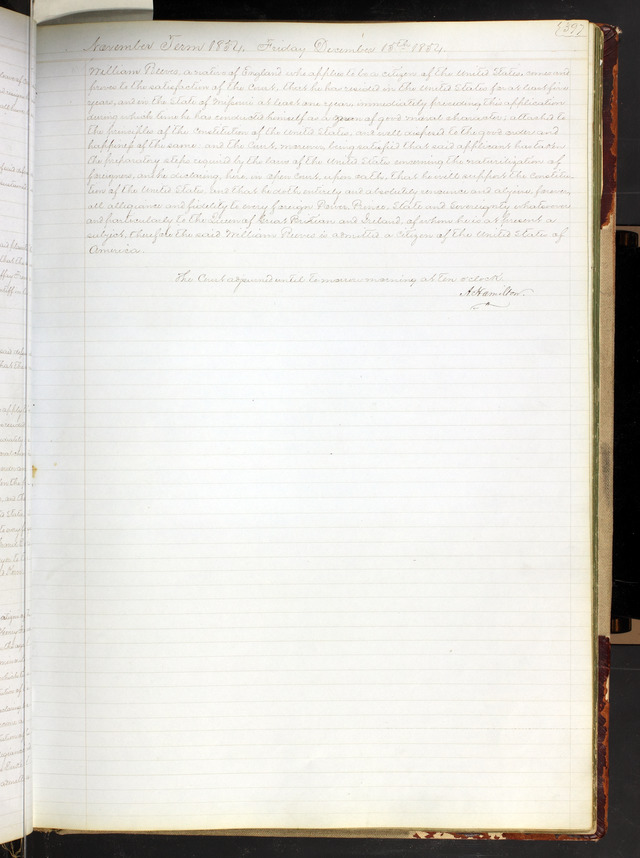 397
November Term 1854. Friday December 15th 1854.
William Reeves, a native of England who applies to be a citizen of the United States, comes and
proves to the satisfaction of the Court, that he has resided in the United States for at least five
years, and in the State of Missouri at least one year, immediately preceding this application
during which time he has conducted himself as a person of good moral character, attached to
the principles of the Constitution of the United States, and well disposed to the good order and
happiness of the same, and the Court, moreover being satisfied that said applicant has taken
the preparatory steps required by the laws of the United States concerning the naturalization of
foreigners, and he declaring, here in open Court, upon oath, that he will support the Constitu-
tion of the United States, and that he doth entirely and absolutely renounce and abjure, forever,
all allegiance and fidelity to every foreign Power, Prince, State and Sovereignty whatsoever
and particularly to the Queen of Great Britain and Ireland, of whom he is at present a
subject, therefore the said William Reeves is admitted a citizen of the United States of
America.
The Court adjourned until tomorrow morning at ten o'clock
A. Hamilton.